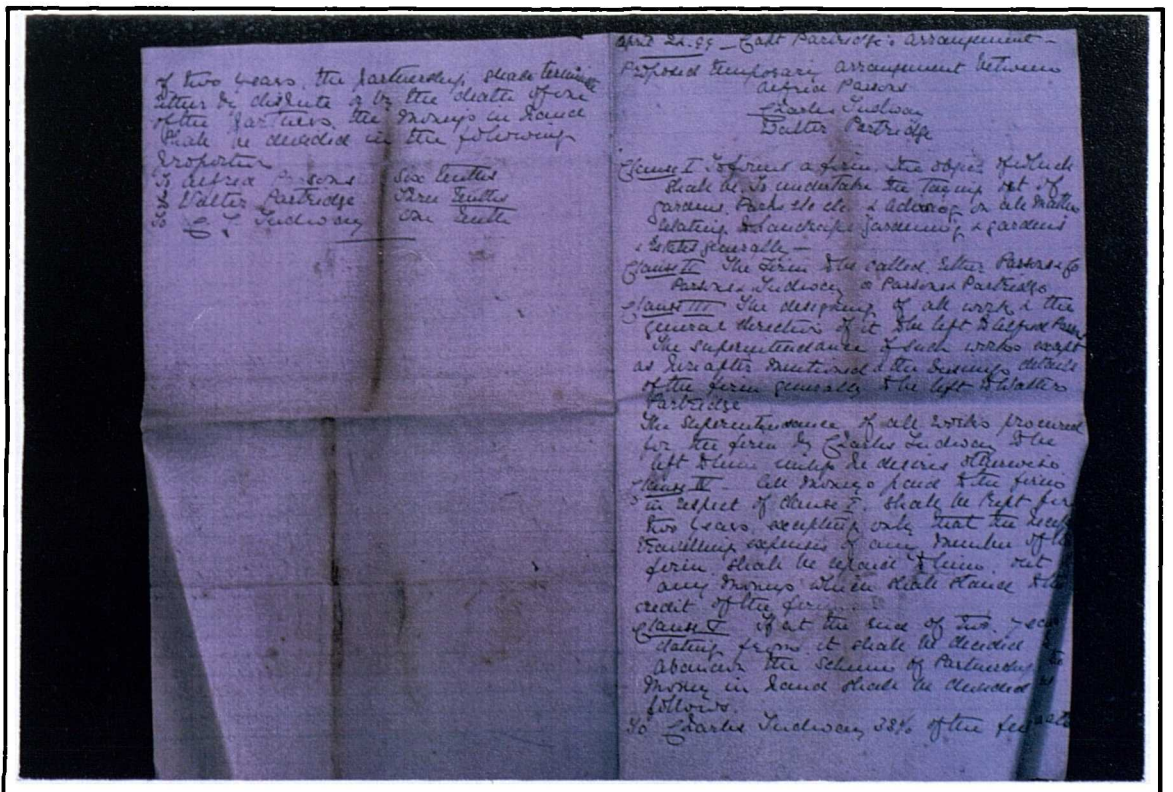 of two years, the partnership shall terminate
either by dispute or by the death of one
of the partners, the moneys in hand
shall be divided in the following
proportion
To Alfred Parsons six tenths
To Walter Partridge Three Tenths
To C. Tudway one Tenth
April 22. 99 – Capt Partridge's arrangement –
Proposed temporary arrangement between
Alfred Parsons
Charles Tudway
Walter Partridge
Clause I To form a firm, the object of which
shall be, to undertake the laying out of
gardens, Parks etc etc & advising on all matters
relating to Landscape gardening & gardens
& Estates generally –
Clause II The Firm to be called either Parsons & Co
Parsons & Tudway or Parsons & Partridge
Clause III The designing of all work & the
general direction of it to be left to Alfred Parsons
The superintendance of such works except
as hereafter mentioned & the business details
of the firm generally to be left to Walter
Partridge
The Superintendance of all works procured
for the firm by Charles Tudway to be
left to him unless he desires otherwise
Clause IV All moneys paid to the firm
in respect of clause I. shall be kept for
two years, excepting only that the
travelling expenses of any member of the
firm shall be repaid to him out
any moneys which shall stand to the
credit of the firm
Clause V If at the end of two years
dating from it shall be decided to
abandon the scheme of Partnership the
money in hand shall be divided as
follows.
To Charles Tudway 33% of the